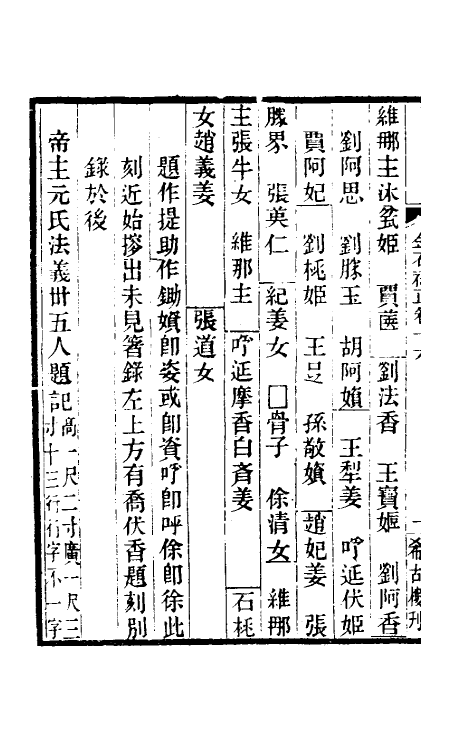 維那主沐㿻姬　賈薩　劉法香　王寶姬　劉阿香
劉阿思　劉豚玉　胡阿嬪　王犁姜　呼延伏姬
賈阿妃　劉桃姬　王㞢　孫敬嬪　趙妃姜　張
豚界　張英仁　紀姜女　□骨子　徐清女　維那
主張牛女　維那主　呼延摩香白斉姜　石桃
女趙義姜　張道女
題作提助作鋤嬪卽姿或卽資呼卽呼徐卽徐此
刻近始撏出未見箸錄左上方有喬伏香題刻別
錄於後
帝主元氏法義卅五人題記高一尺二寸廣一尺三
寸十三行行字不一字